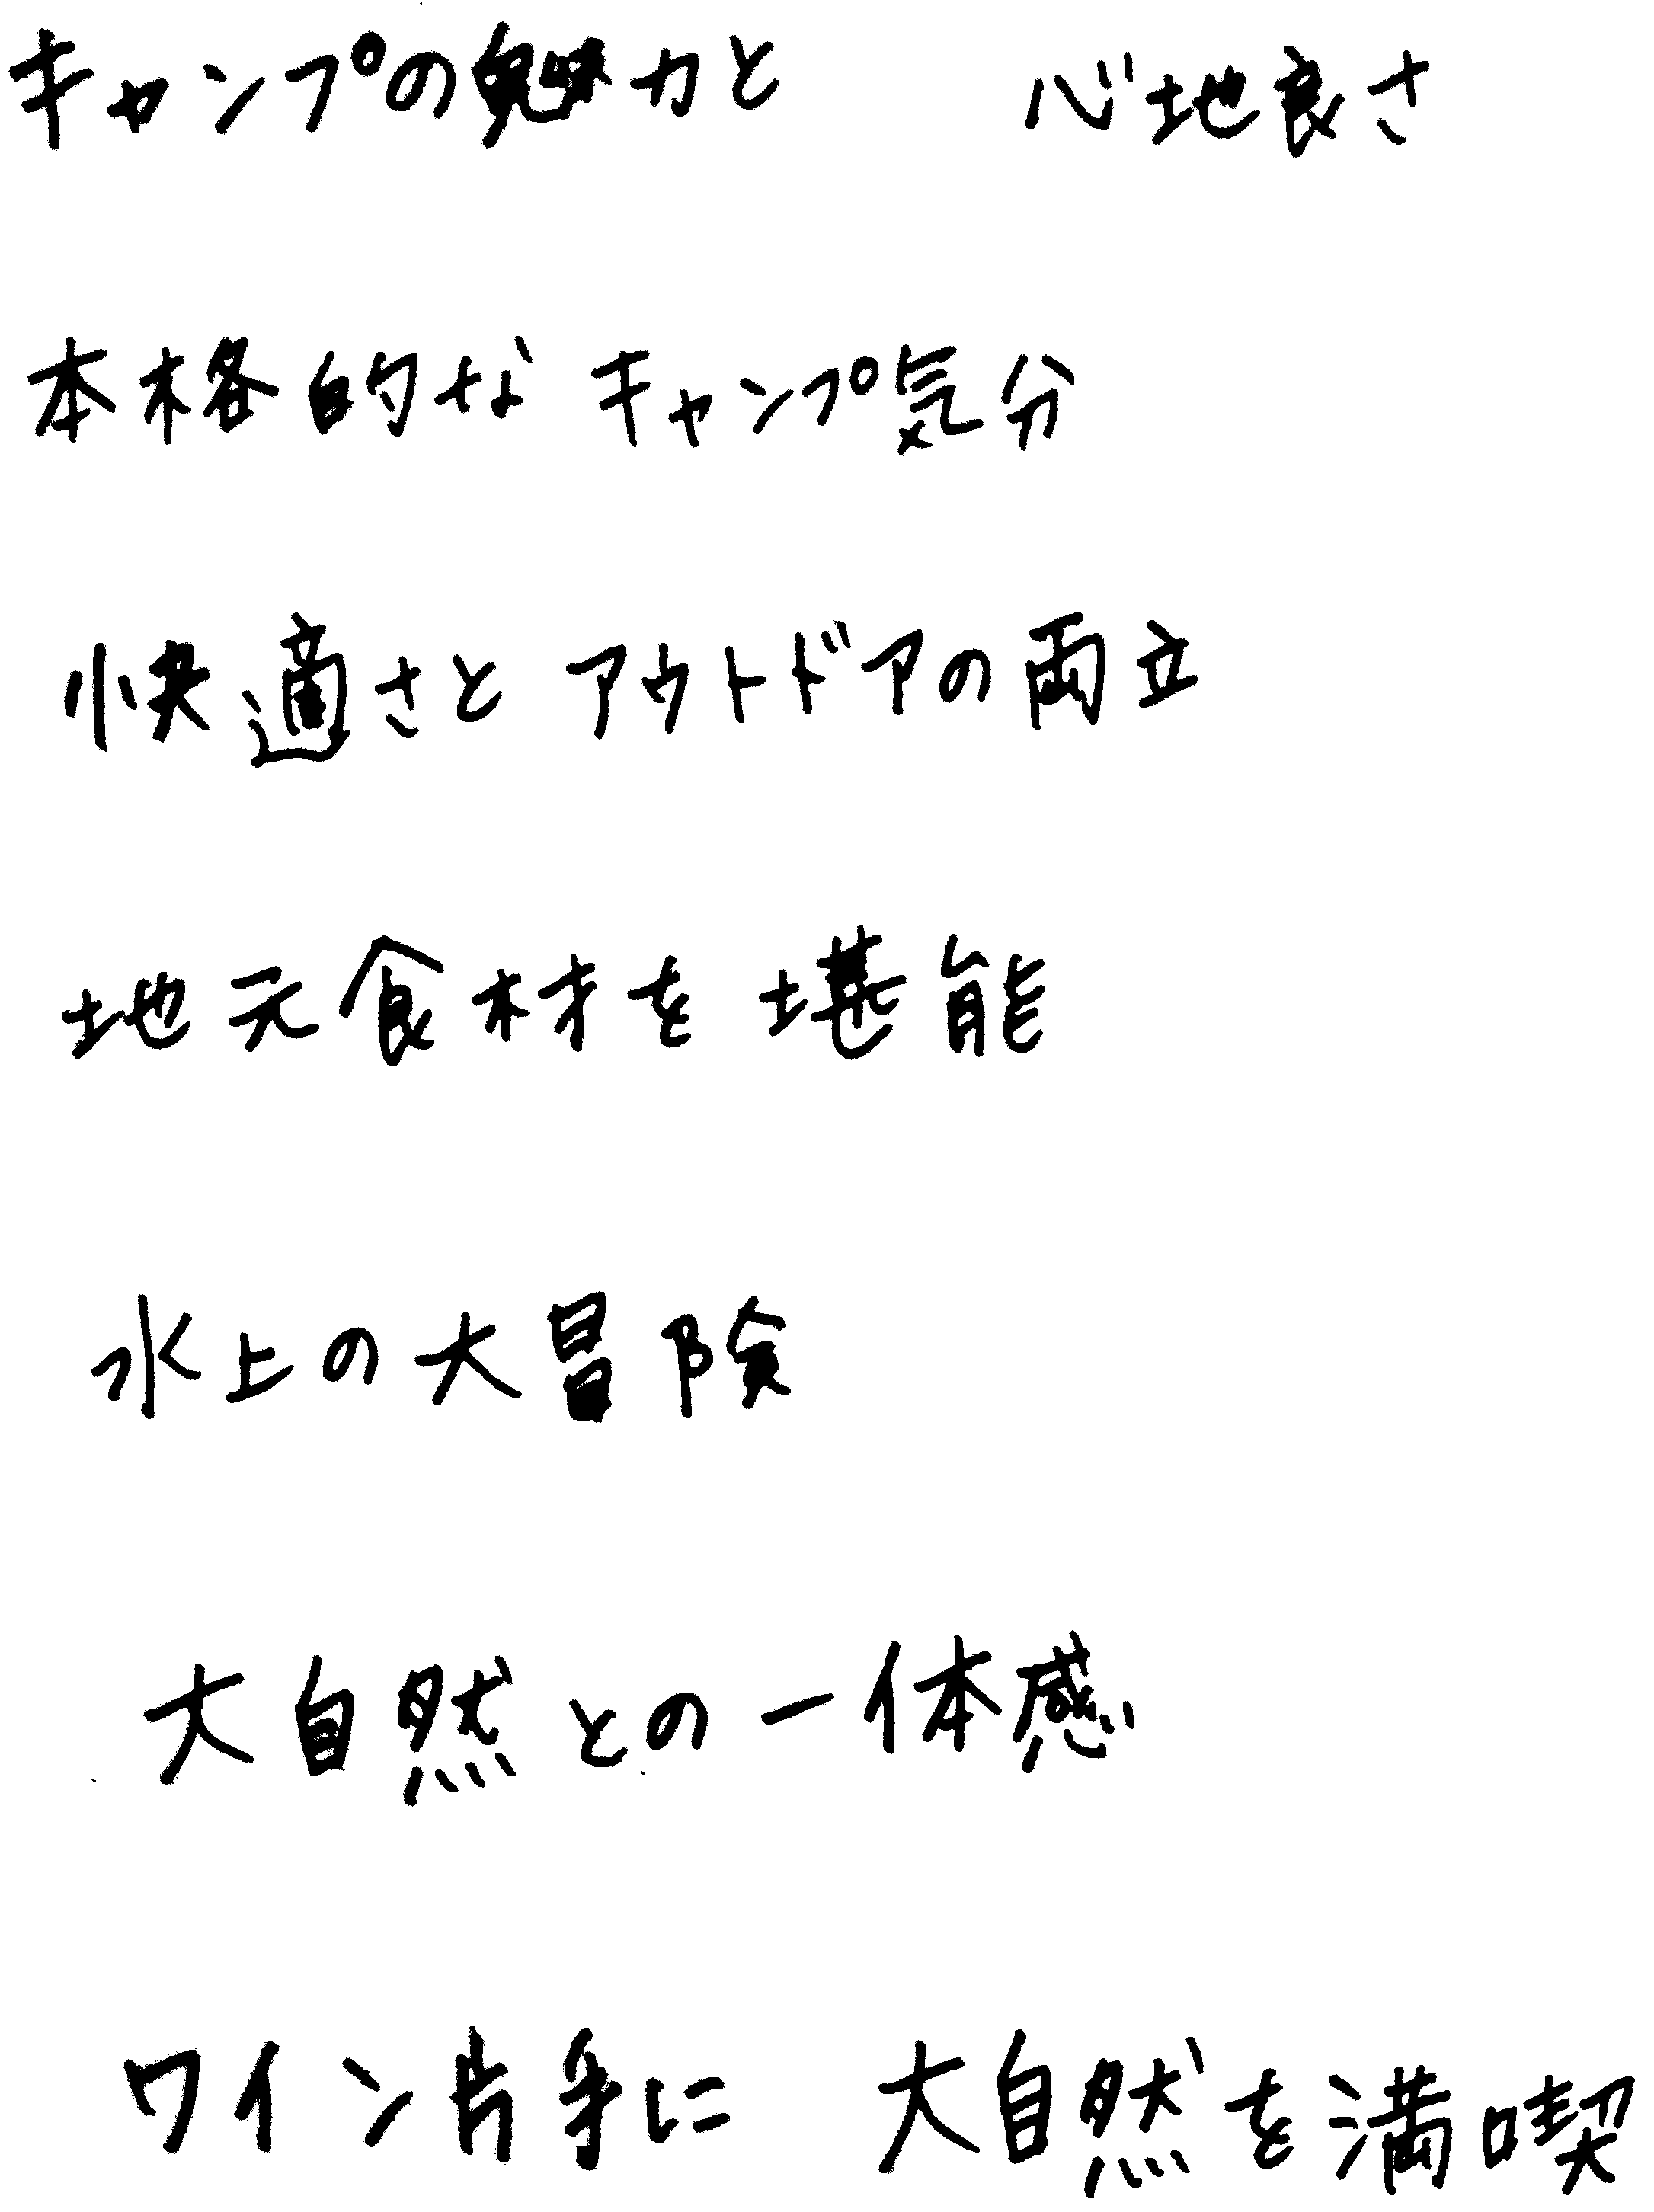 キャンプの魅力と 心地良さ
本格的な キャンプ気分
快適さと アウトドアの両立
地元食材を 堪能
水上の大冒険
大自然との一体感
ワイン片手に 大自然を満喫